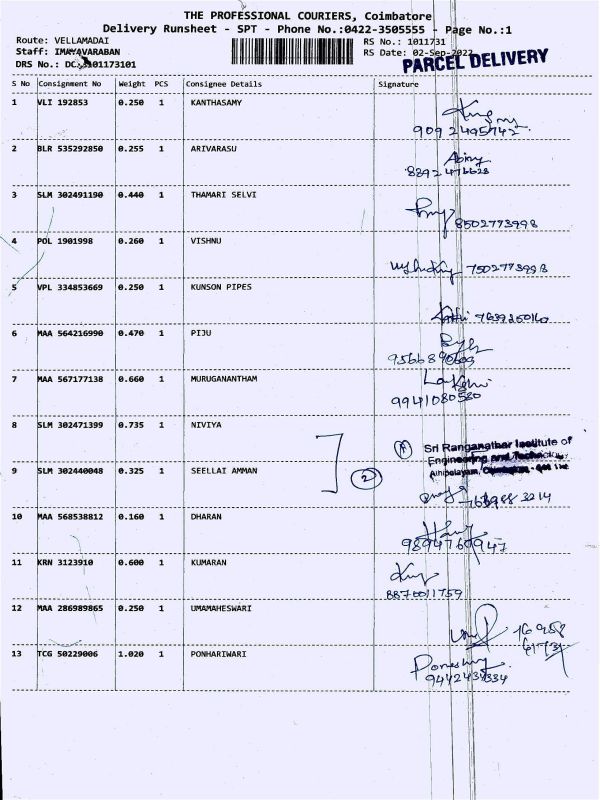 THE PROFESSIONAL COURIERS, Coimbatore
Delivery Runsheet - SPT - Phone No.:0422-3505555 - Page No.:1
Route: VELLAMADAI RS No.: 1011731
Staff: IMAYAVARABAN RS Date: 02-Sep-2022
DRS No.: 3101173101 PARCEL DELIVERY
S No Consignment No Weight PCS Consignee Details Signature
1 VLI 192853 0.250 1 KANTHASAMY
9092495742
2 BLR 535292850 0.255 1 ARIVARASU
8892476628
3 SLM 302491190 0.440 1 THAMARI SELVI
8502773998
4 POL 1901998 0.260 1 VISHNU
7502773998
5 VPL 334853669 0.250 1 KUNSON PIPES
7639250160
6 MAA 564216990 0.470 1 PIJU
9566890609
7 MAA 567177138 0.660 1 MURUGANANTHAM
9941080580
8 SLM 302471399 0.735 1 NIVIYA
Sri Ranganathar Institute of
Engineering and Technology
9 SLM 302440048 0.325 1 SEELLAI AMMAN 2
Athipalayam, Coimbatore
10 MAA 568538812 0.160 1 DHARAN
9894760947
11 KRN 3123910 0.600 1 KUMARAN
8870011759
12 MAA 286989865 0.250 1 UMAMAHESWARI
13 TCG 50229006 1.020 1 PONHARIWARI
9442434334